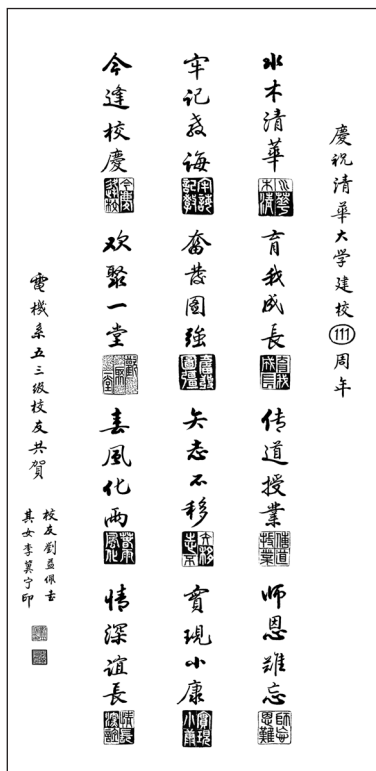 慶祝清華大学建校111周年
水木清華 育我成長 传道授業 师恩難忘
牢记教诲 奮發图強 矢志不移 實現小康
今逢校慶 欢聚一堂 春風化雨 情深谊長
電機系五三级校友共賀
校友劉益佩书
其女李冀宁印